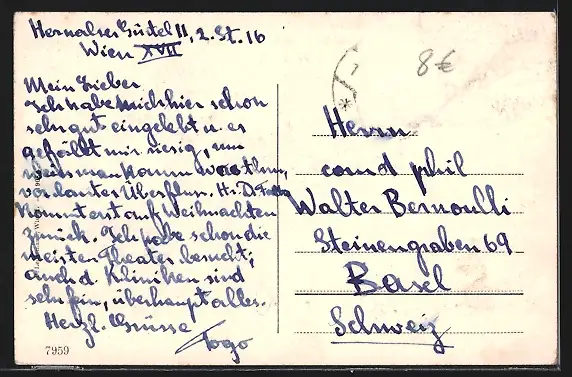 Hernalser Gürtel 11, 2. St. 16
Wien XVII
Mein Lieber
Ich habe mich hier schon
sehr gut eingelebt u. es
gefällt mir riesig, nur
weiss man kaum was thun,
vor lauter Überfluss. Hr. D.
kommt erst auf Weihnachten
zurück. Ich habe schon die
meisten Theater besucht;
auch d. Kliniken sind
sehr fein, überhaupt alles.
Herzl. Grüsse
Togo
7959
8€
Herrn
cand phil
Walter Bernoulli
Steinengraben 69
Basel
Schweiz